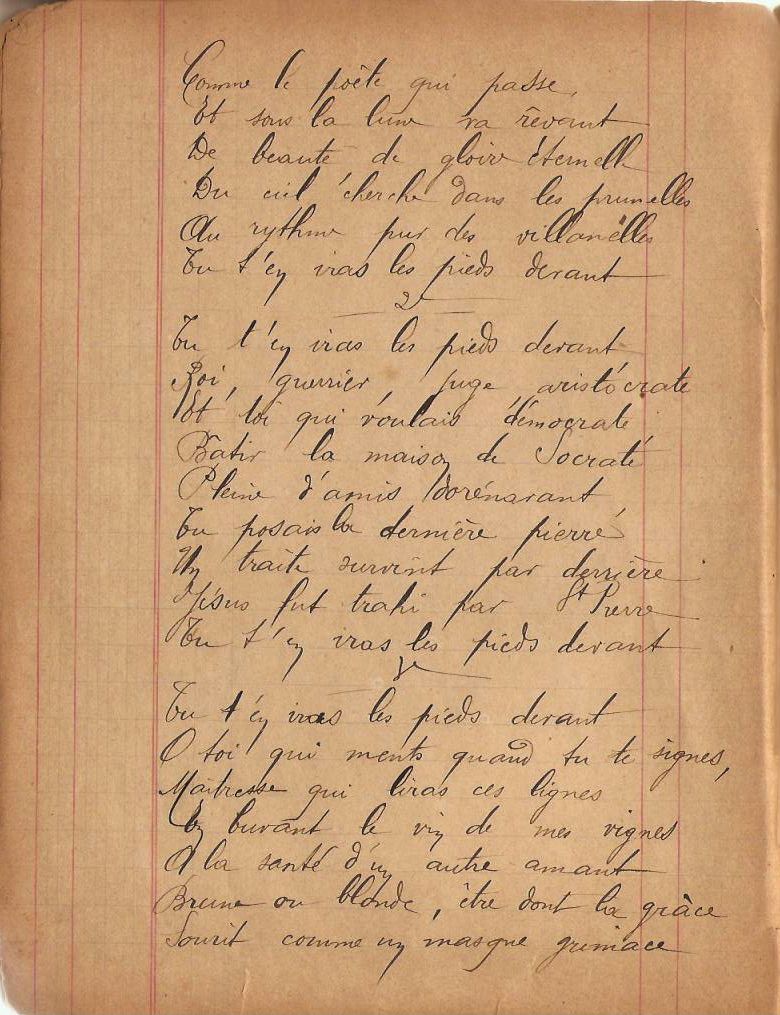 Comme le poète qui passe,
Et sous la lune va rêvant
De beauté de gloire éternelle
Du ciel cherche dans les prunelles
Au rythme pur des villanelles
Tu t'en iras les pieds devant
2
Tu t'en iras les pieds devant
Roi, guerrier, juge aristocrate
Et toi qui voulais démocrate
Bâtir la maison de Socrate
Pleine d'amis dorénavant
Tu posais la dernière pierre
Un traite survint par derrière
Jésus fut trahi par St Pierre
Tu t'en iras les pieds devant
3
Tu t'en iras les pieds devant
O toi qui ments quand tu te signes,
Maitresse qui liras ces lignes
En buvant le vin de mes vignes
A la santé d'un autre amant
Brune ou blonde, être dont la grâce
Sourit comme un masque grimace